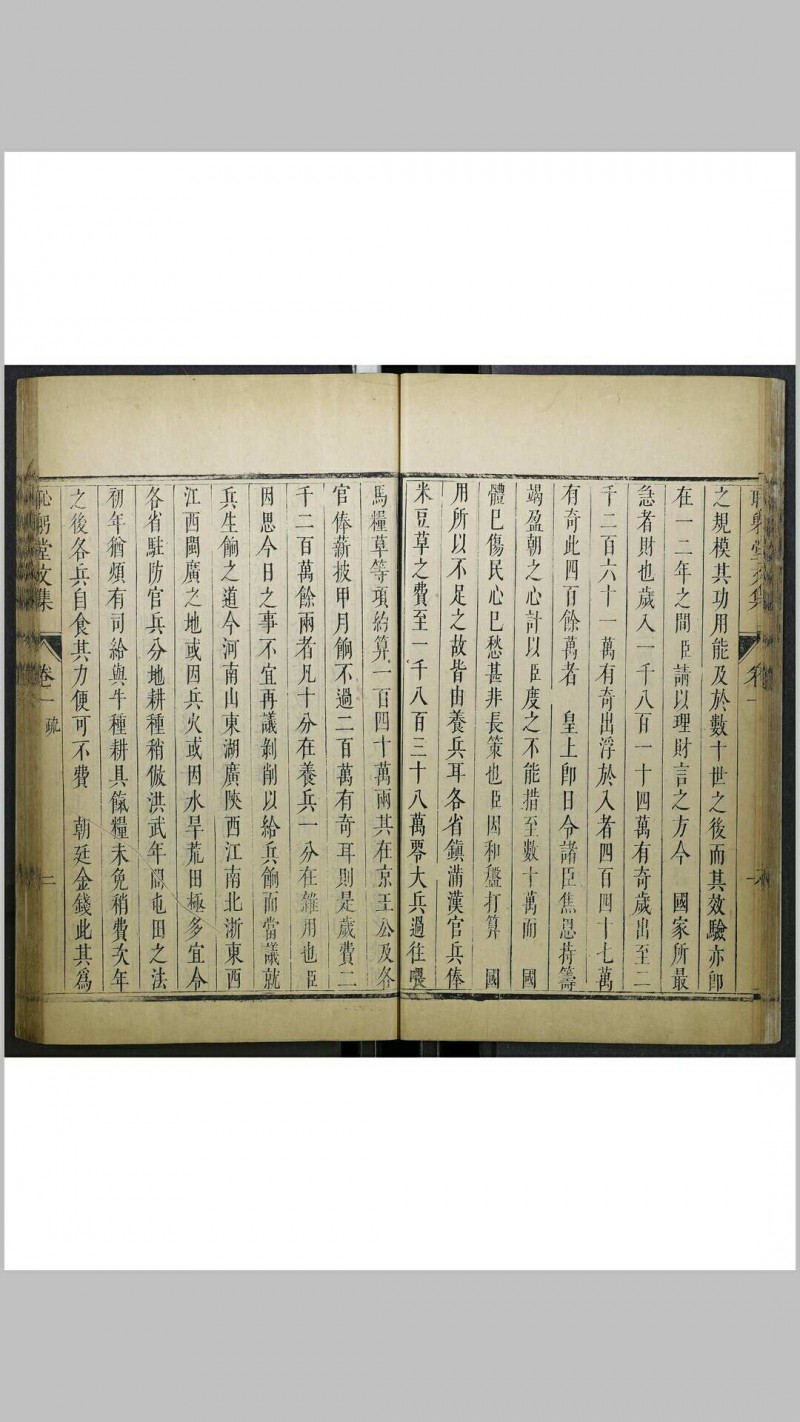 之規模其功用能及於數十世之後而其效驗亦即
在一二年之間臣請以理財言之方今　國家所最
急者財也歲入一千八百一十四萬有奇歲出至二
千二百六十一萬有奇出浮於入者四百四十七萬
有奇此四百餘萬者　皇上即日令諸臣焦思持籌
竭盈朝之心計以臣度之不能措至數十萬而　國
體已傷民心已愁甚非長策也臣因和盤打算　國
用所以不足之故皆由養兵耳各省鎮滿漢官兵俸
米豆草之費至一千八百三十八萬零大兵過往喂
馬糧草等項約算一百四十萬兩其在京王公及各
官俸薪披甲月餉不過二百萬有奇耳則是歲費二
千二百萬餘兩者凡十分在養兵一分在雜用也臣
因思今日之事不宜再議剝削以給兵餉而當議就
兵生餉之道今河南山東湖廣陝西江南北浙東西
江西閩廣之地或因兵火或因水旱荒田極多宜令
各省駐防官兵分地耕種稍倣洪武年間屯田之法
初年猶煩有司給與牛種耕具餼糧未免稍費次年
之後各兵自食其力便可不費　朝廷金錢此其爲
恥躬堂文集　卷一　疏　二